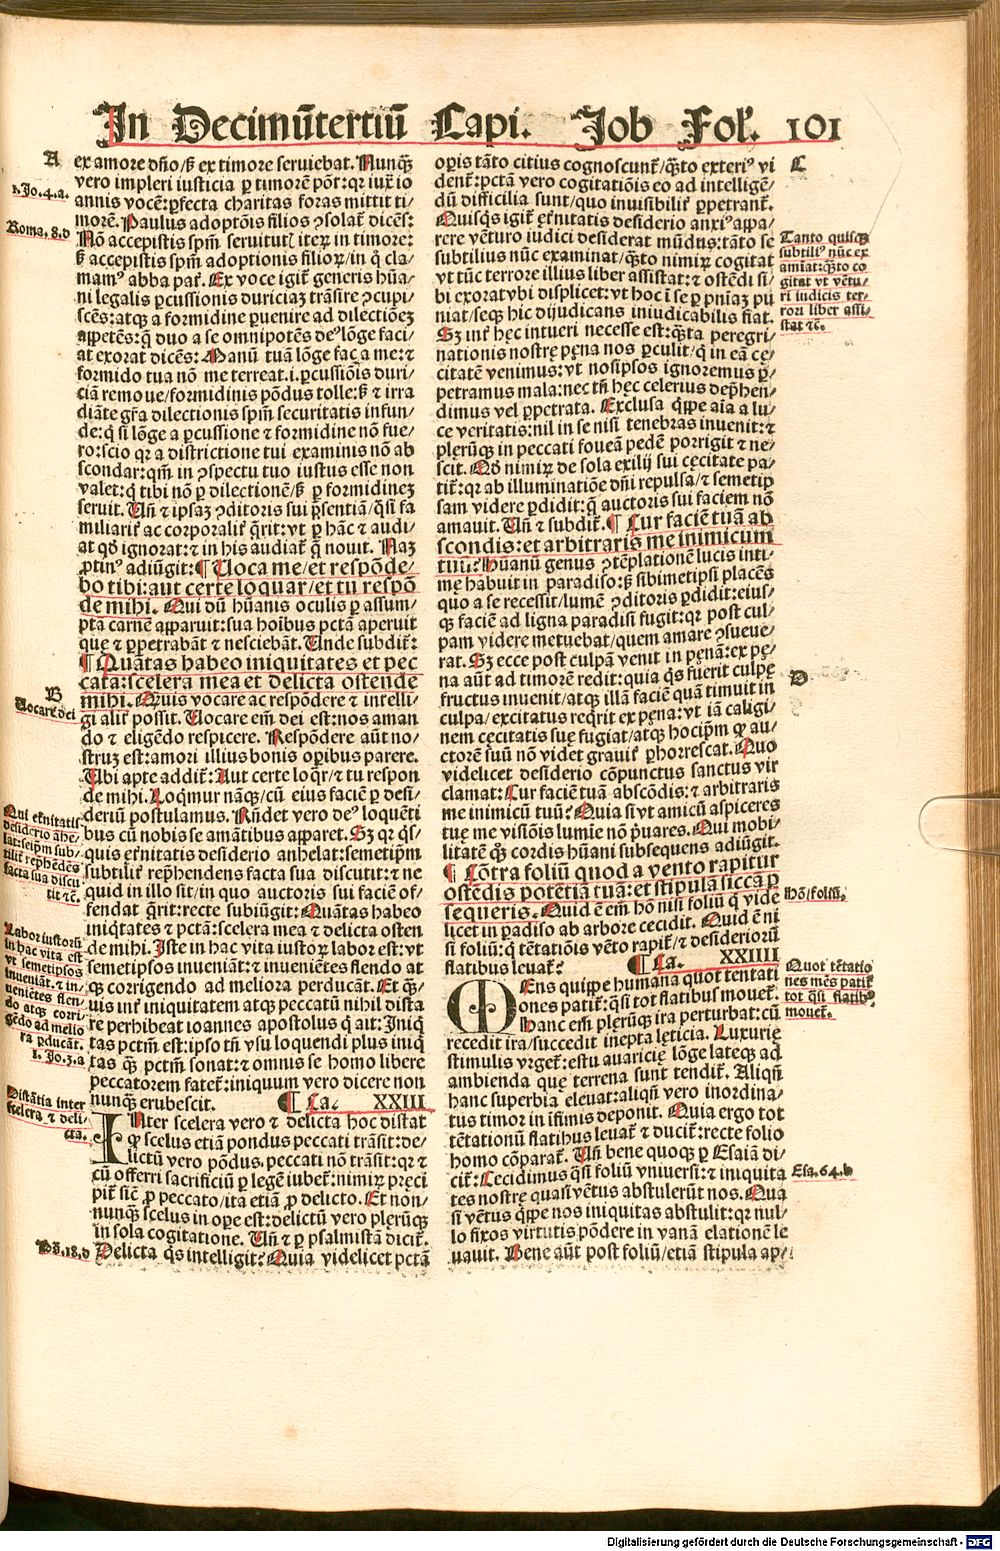 In Decimũtertiũ Capi. Job Fol'. 101
A
1. Jo. 4. a.
Roma. 8. d
ex amore dño/sꝫ ex timore seruiebat. Nunq̃ꝫ
vero impleri iusticia ꝑ timorẽ põt: qꝛ iux̃ io
annis vocẽ: ꝑfecta charitas foras mittit ti-
morẽ. Paulus adoptõis filios ꝯsolat̃ dicẽs:
Nõ accepistis spm̃ seruitutꝭ iteꝝ in timore:
sꝫ accepistis spm̃ adoptionis filioꝝ/in q̃ cla-
mamꝰ abba pat̃. Ex voce igit̃ generis hũa/
ni legalis ꝑcussionis duriciaꝫ trãsire ꝯcupi/
scẽs: atqꝫ a formidine ꝑuenire ad dilectiõeꝫ
appetẽs: q̃ duo a se omnipotẽs deꝰ lõge faci/
at exorat dicẽs: Manũ tuã lõge fac a me: ⁊
formido tua nõ me terreat. i. ꝑcussiõis duri/
ciã remoue/formidinis põdus tolle: sꝫ ⁊ irra
diãte gr̃a dilectionis spm̃ securitatis infun/
de: q̃ si lõge a ꝑcussione ⁊ formidine nõ fue/
ro: scio qꝛ a districtione tui examinis nõ ab
scondar: qm̃ in ꝯspectu tuo iustus esse non
valet: q̃ tibi nõ ꝑ dilectionẽ/sꝫ ꝑ formidineꝫ
seruit. Uñ ⁊ ipsaꝫ ꝯditoris sui p̃sentiã/q̃si fa
miliarit̃ ac corporalit̃ q̃rit: vt ꝑ hãc ⁊ audi/
at qđ ignorat: ⁊ in his audiat̃ q̃ nouit. Naꝫ
ꝓtinꝰ adiũgit: ¶ Uoca me/et respõde/
bo tibi: aut certe loquar/et tu respõ
de mihi. Qui dũ hũanis oculis ꝑ assum/
ptã carnẽ apparuit: sua hoibus pctã aperuit
que ⁊ ꝑpetrabãt ⁊ nesciebãt. Unde subdit̃:
¶ Quãtas habeo iniquitates et pec
cata: scelera mea et delicta ostende
mihi. Quis vocare ac respõdere ⁊ intelli/
gi alit̃ possit. Uocare em̃ dei est: nos aman
do ⁊ eligẽdo respicere. Respõdere aũt no/
struꝫ est: amori illius bonis oꝑibus parere.
Ubi apte addit̃: Aut certe loq̃r/⁊ tu respon
de mihi. Loq̃mur nãqꝫ/cũ eius faciẽ ꝑ desi/
deriũ postulamus. Rñdet vero deꝰ loquẽti
bus cũ nobis se amãtibus apparet. Sꝫ qꝛ q̃s/
quis et̃nitatis desiderio anhelat: semetip̃m
subtilit̃ rep̃hendens facta sua discutit: ⁊ ne
quid in illo sit/in quo auctoris sui faciẽ of/
fendat q̃rit: recte subiũgit: Quãtas habeo
iniq̃tates ⁊ pctã: scelera mea ⁊ delicta osten
de mihi. Iste in hac vita iustoꝝ labor est: vt
semetipsos inueniãt: ⁊ inueniẽtes flendo at
qꝫ corrigendo ad meliora perducãt. Et q̃ꝫ/
uis int̃ iniquitatem atqꝫ peccatũ nihil dista
re perhibeat ioannes apostolus q̃ ait: Iniq̃
tas pctm̃ est: ipso tñ vsu loquendi plus iniq̃
tas q̃ꝫ pctm̃ sonat: ⁊ omnis se homo libere
peccatorem fatet̃: iniquum vero dicere non
nunqꝫ erubescit. ¶ Ca. XXIII
Inter scelera vero ⁊ delicta hoc distat
qđ scelus etiã pondus peccati trãsit: de/
lictũ vero põdus peccati nõ trãsit: qꝛ ⁊
cũ offerri sacrificiũ ꝑ legẽ iubet̃: nimiꝝ p̃ci
pit̃ sicẽ ꝓ peccato/ita etiã ꝓ delicto. Et non/
nunqꝫ scelus in oꝑe est: delictũ vero plerũqꝫ
in sola cogitatione. Uñ ⁊ ꝑ psalmistã dicit̃.
Delicta q̃s intelligit: Quia videlicet pctã
B
Uocare dei
Qui et̃nitatis
desiderio ãhe-
lat: seip̃m sub/
tilit̃ rep̃hẽdẽs
facta sua discu
tit ⁊c̃.
Labor iustorũ
in hac vita est
vt semetipsos
inueniãt. ⁊ in/
ueniẽtes flen/
do atqꝫ corri/
gẽdo ad melio
ra ꝑducãt.
1. Jo. 3. a
Distãtia inter
scelera ⁊ deli/
cta.
Ps̃. 18. d
oꝑis tãto citius cognoscunt̃/q̃ꝫto exteriꝰ vi
dent̃: pctã vero cogitatiõis eo ad intelligẽ/
dũ difficilia sunt/quo inuisibilit̃ ꝑpetrant̃.
Quisq̃s igit̃ et̃nitatis desiderio anxiꝰ appa/
rere vẽturo iudici desiderat mũdus: tãto se
subtilius nũc examinat/q̃ꝫto nimiꝝ cogitat
vt tũc terrore illius liber assistat: ⁊ ostẽdi si/
bi exorat vbi displicet: vt hoc ĩ se ꝑ pniaꝫ pũ
niat/seqꝫ hic dijudicans iniudicabilis fiat.
Sꝫ int̃ hęc intueri necesse est: q̃ꝫta peregri/
nationis nostrę pęna nos ꝑculit/q̃ in eã cę/
citatẽ venimus: vt nosipsos ignoremus ꝑ/
petramus mala: nec tñ hęc celerius dep̃hen/
dimus vel ꝑpetrata. Exclusa q̃ppe aĩa a lu/
ce veritatis: nil in se nisi tenebras inuenit: ⁊
plerũqꝫ in peccati foueã pedẽ porrigit ⁊ ne/
scit. Qđ nimiꝝ de sola exilij sui cęcitate pa/
tit̃: qꝛ ab illuminatiõe dñi repulsa/⁊ semetip
sam videre ꝑdidit: q̃ auctoris sui faciem nõ
amauit. Uñ ⁊ subdit̃. ¶ Cur faciẽ tuã ab
scondis: et arbitraris me inimicum
tuũ? Hũanũ genus ꝯtẽplationẽ lucis inti-
mę habuit in paradiso: sꝫ sibimetipsi placẽs
quo a se recessit/lumẽ ꝯditoris ꝑdidit: eius/
qꝫ faciẽ ad ligna paradisi fugit: qꝛ post cul/
pam videre metuebat/quem amare ꝯsueue/
rat. Sꝫ ecce post culpã venit in pęnã: ex pę/
na aũt ad timorẽ redit: quia q̃s fuerit culpę
fructus inuenit/atqꝫ illã faciẽ quã timuit in
culpa/excitatus req̃rit ex pęna: vt iã caligi/
nem cęcitatis suę fugiat/atqꝫ hocip̃m qꝫ au/
ctorẽ suũ nõ videt grauit̃ ꝑhorrescat. Quo
videlicet desiderio cõpunctus sanctus vir
clamat: Cur faciẽ tuã abscõdis: ⁊ arbitraris
me inimicũ tuũ? Quia si vt amicũ aspiceres
tuę me visiõis lumĩe nõ p̃uares. Qui mobi/
litatẽ q̃ꝫ cordis hũani subsequens adiũgit.
¶ Cõtra foliũ quod a vento rapitur
ostẽdis potẽtiã tuã: et stipulã siccã ꝑ
sequeris. Quid ẽ em̃ hõ nisi foliũ q̃ vide
licet in ꝑadiso ab arbore cecidit. Quid ẽ ni
si foliũ: q̃ tẽtatiõis vẽto rapit̃/⁊ desideriorũ
flatibus leuat̃? ¶ Ca. XXIIII
MEns quippe humana quot tentati
ones patit̃: q̃si tot flatibus mouet̃.
Hanc em̃ plerũqꝫ ira perturbat: cũ
recedit ira/succedit inepta lęticia. Luxurię
stimulis vrget̃: estu auaricię lõge lateqꝫ ad
ambienda quę terrena sunt tendit̃. Aliqñ
hanc superbia eleuat: aliqñ vero inordina/
tus timor in ĩfimis deponit. Quia ergo tot
tẽtationũ flatibus leuat̃ ⁊ ducit̃: recte folio
homo cõparat̃. Uñ bene quoqꝫ ꝑ Esaiã di/
cit̃: Cecidimus q̃si foliũ vniuersi: ⁊ iniquita
tes nostrę quasi vẽtus abstulerũt nos. Qua
si vẽtus q̃ppe nos iniquitas abstulit: qꝛ nul/
lo fixos virtutis põdere in vanã elationẽ le
uauit. Bene aũt post foliũ/etiã stipula ap/
C
Tanto quisqꝫ
subtiliꝰ nũc ex
amiat: q̃ꝫto co
gitat vt vẽtu/
ri iudicis ter-
rori liber assi/
stat ⁊c̃.
D
Hõ/foliũ.
Quot tẽtatio
nes mẽs patit̃
tot q̃si flatibꝰ
mouet̃.
Esa. 64. b
Digitalisierung gefördert durch die Deutsche Forschungsgemeinschaft - DFG